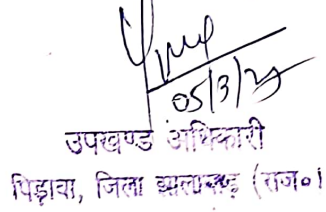 05/3/25
उपखण्ड अधिकारी
पिड़ावा, जिला झालावाड़ (राज०)